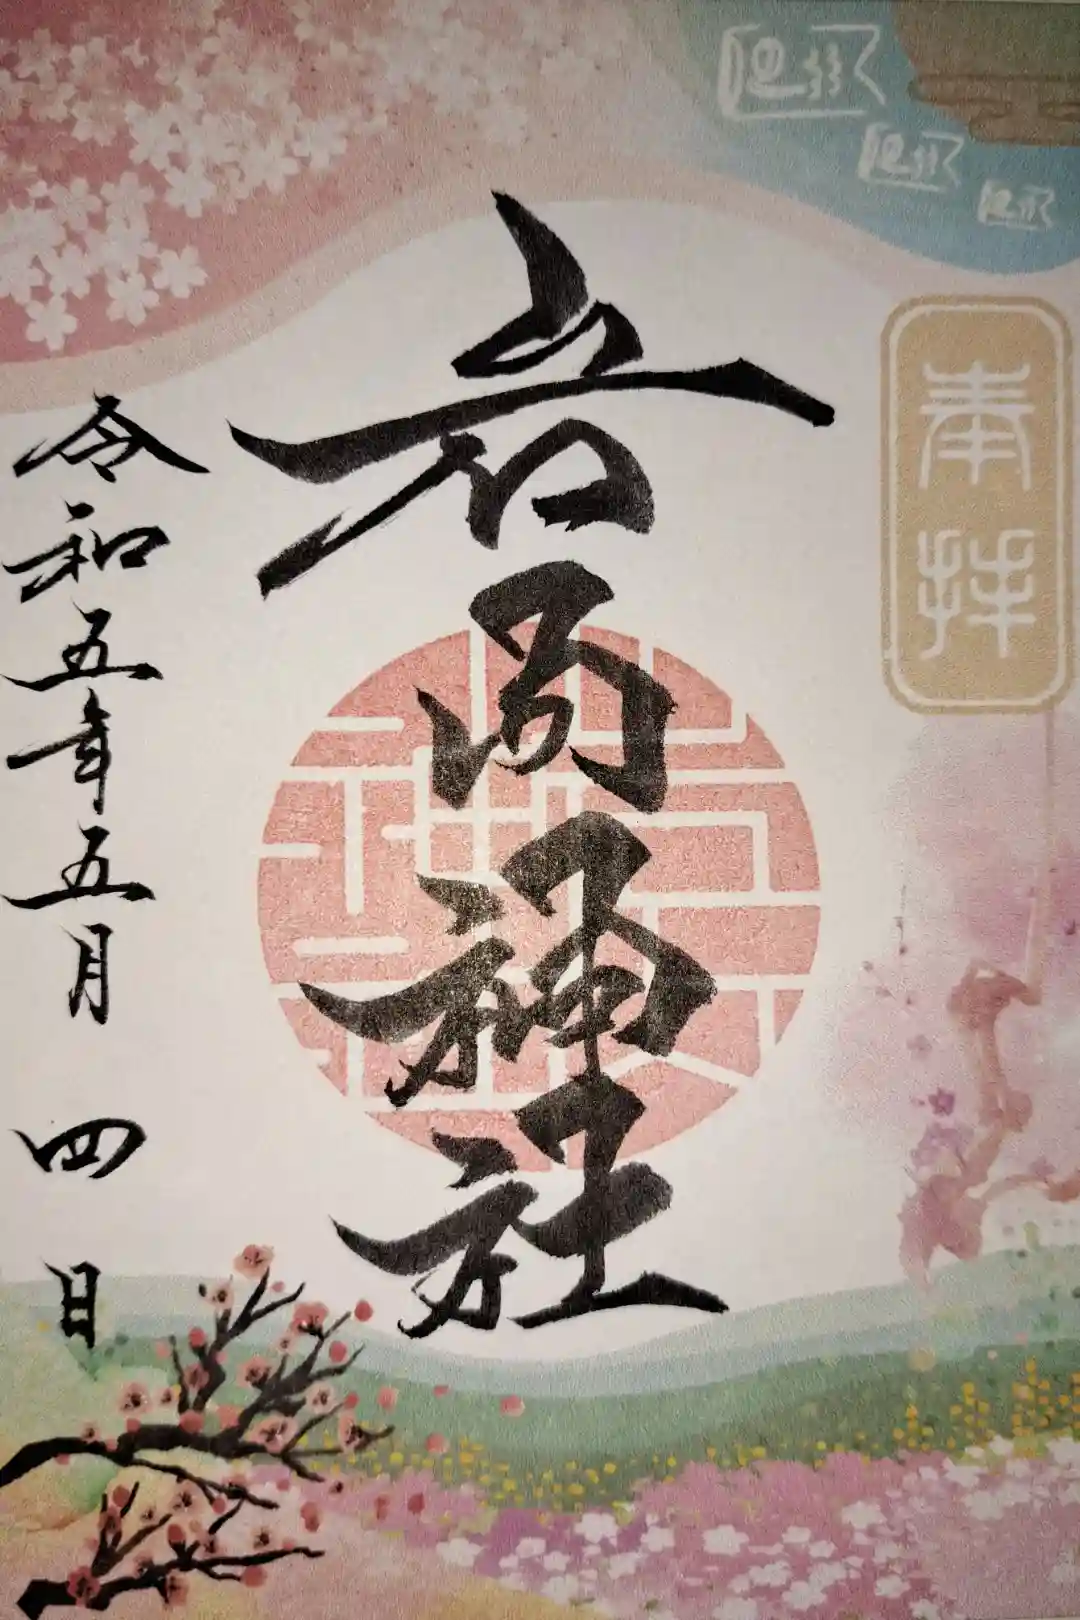 奉拝
岩内神社
令和五年五月四日